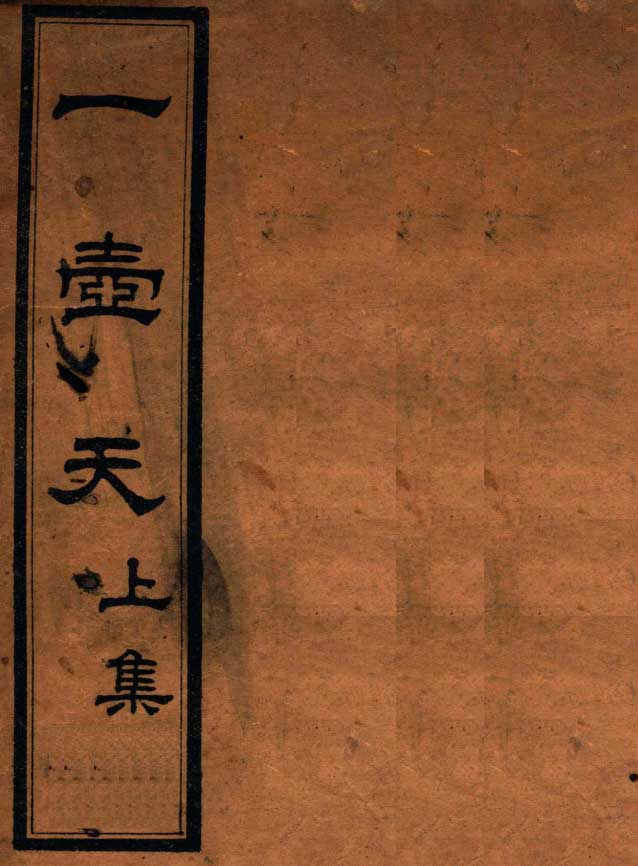 一壺天上集